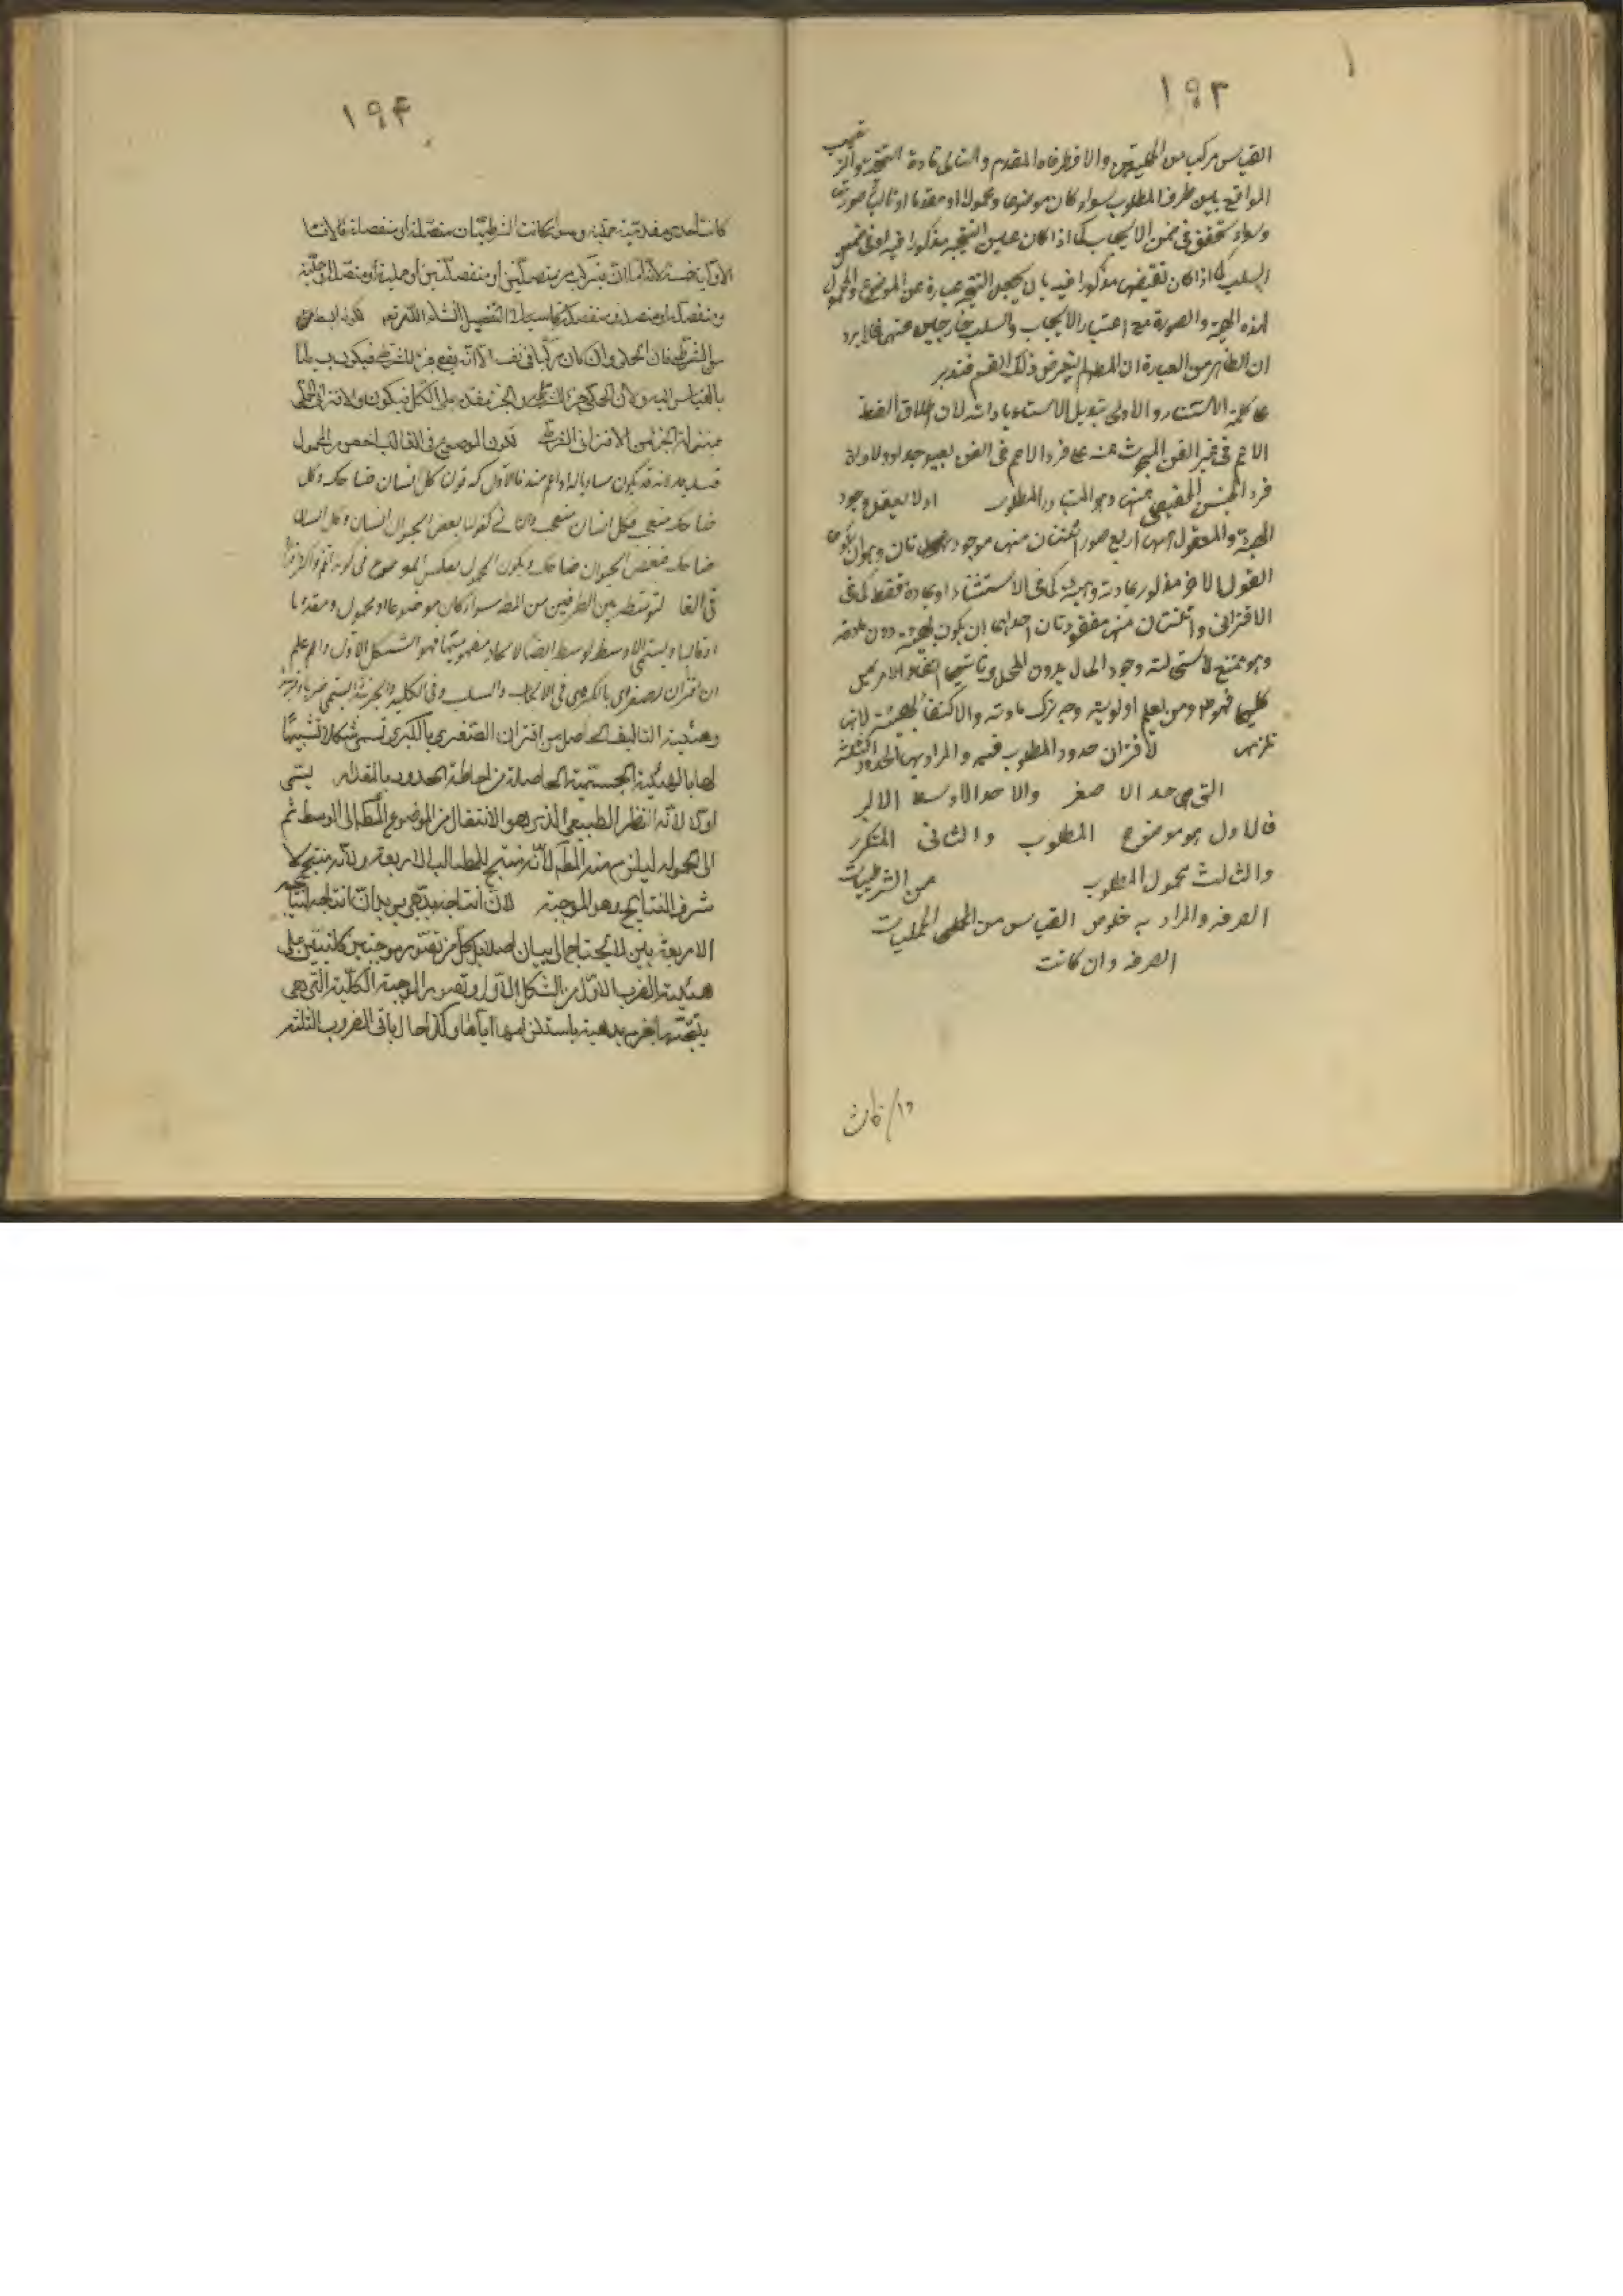 ١٩٣
القياس مركب من الحمليتين والا فطرفاه المقدم والتالى مادة النتيجة والترتيب
الواقع بين طرفى المطلوب سواء كان موضوعا ومحمولا او مقدما او تاليا صورتى
وسواء تحقق فى ضمن الايجاب كما اذا كان عين النتيجة مذكورا فيه او فى ضمن
السلب كما اذا كان نقيضها مذكورا فيه بان يجعل النتيجة عبارة عن الموضوع والمحمول
لهذه الهيئة والصورة مع اعتبار الايجاب والسلب خارجين عنها فلا يرد
ان الظاهر من العبارة ان المص لم يتعرض ذلك القسم فتدبر
كلمة الاستثناء والاولى تبديل الاستثناء باداته لان اطلاق اللفظ
الاعم فى غير الفن المبحوث عنه على فرد الاعم فى الفن بعيد جدا ودلالة
فرد الجنس الحقيقى منها وهو المتبادر المطلوب اولا يعقل وجود
الهيئة والمعقول ههنا اربع صور اثنتان منها موجودتان وهو ان يكون
القول الاخر مذكورا بمادته وهيئته كما فى الاستثناء او بمادة فقط كما فى
الاقترانى واثنتان منها مفقودتان احدهما ان يكون بهيئة دون مادته
وهو ممتنع لاستحالة وجود الحال بدون المحل وثانيتهما انتفاء الامرين
كليهما فهو ومن يعلم اولويته وجه ترك مادته والاكتفاء بهيئته لانها
تلزمه لاقتران حدود المطلوب فيه والمراد بها الحدود الثلثة
التى هى حد الاصغر والاحد الاوسط الاكبر
فالاول هو موضوع المطلوب والثانى المتكرر
والثالث محمول المطلوب من الشرطيات
الصرفة والمراد به خلوص القياس من الحملى الحمليات
الصرفة وان كانت
١٩٤
كانت احدى مقدمتيه حملية وسواء كانت الشرطيتان متصلة او منفصلة فالاقسام
الاولية خمسة لانه اما ان يتركب من متصلتين او منفصلتين او حملية او متصلة وحملية
ومنفصلة او متصلة ومنفصلة كما سيجئ التفصيل انشاء الله تعالى لكونه ابسط من
من الشرطى فان الحملى وان كان مركبا فى نفسه الا انه يقع جزء للشرطى فيكون بسيطا
بالقياس اليه ولان الحملى جزء الشرطى والجزء مقدم على الكل فيكون والاقترانى الحملى
بمنزلة الجزء من الاقترانى الشرطى لكون الموضوع فى الغالب اخص من المحمول
قيد به لانه قد يكون مساويا له او اعم منه فالاول كقولنا كل انسان ضاحك وكل
ضاحك متعجب فكل انسان متعجب والثانى كقولنا بعض الحيوان انسان وكل انسان
ضاحك فبعض الحيوان ضاحك ويكون المحمول بعكس الموضوع فى كونه اعم واكثر افرادا
فى الغالب لتوسطه بين الطرفين من المط سواء كان موضوعا او محمولا ومقدما
او تاليا ويسمى الاوسط لوسط ايضا لاتحاد مفهوميهما فهو الشكل الاول واعلم
ان اقتران الصغرى بالكبرى فى الايجاب والسلب وفى الكلية والجزئية يسمى ضربا وقرينة
وهيئة التاليف الحاصل من اقتران الصغرى بالكبرى تسمى شكلا تشبيها
لها بالهيئة الجسمية الحاصلة من احاطة الحدود بالمقدار يسمى
اولا لانه النظر الطبيعى الذى هو الانتقال من الموضوع المط الى الوسط ثم
الى المحمول ليلزم منه المط لانه منتج للمطالب الاربعة ولانه منتج لا
شرف النتايج وهو الموجبة لان انتاجه بديهى يريد ان انتاجه نتائجه
الاربعة بين لا يحتاج الى بيان اصلا بل كل من تصور موجبتين كليتين على
هيئة الضرب الاول من الشكل الاول وتصور الموجبة الكلية التى هى
نتيجتهما جزم بديهة باستلزامهما اياها وكذا حال باقى الضروب الثلثة